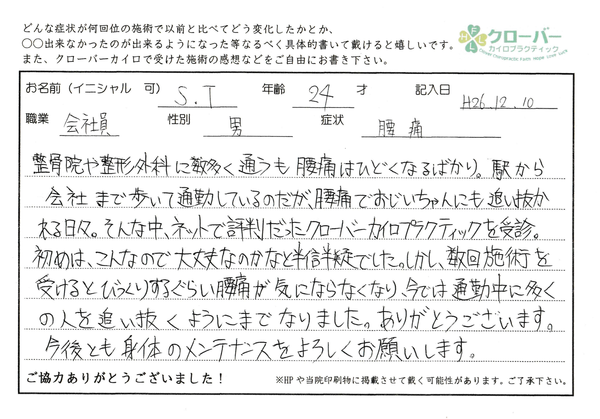 どんな症状が何回位の施術で以前と比べてどう変化したかとか、
〇〇出来なかったのが出来るようになった等なるべく具体的書いて戴けると嬉しいです。
また、クローバーカイロで受けた施術の感想などをご自由にお書き下さい。
クローバー
カイロプラクティック
お名前(イニシャル 可) S.T 年齢 24 才 記入日 H26.12.10
職業 会社員 性別 男 症状 腰痛
整骨院や整形外科に数多く通うも腰痛はひどくなるばかり。駅から
会社まで歩いて通勤しているのだが腰痛でおじいちゃんにも追い抜か
れる日々。そんな中、ネットで評判だったクローバーカイロプラクティックを受診。
初めは、こんなので大丈夫なのかなと半信半疑でした。しかし、数回施術を
受けるとびっくりするぐらい腰痛が気にならなくなり、今では通勤中に多く
の人を追い抜くようにまでなりました。ありがとうございます。
今後とも身体のメンテナンスをよろしくお願いします。
ご協力ありがとうございました! ※HPや当院印刷物に掲載させて戴く可能性があります。ご了承下さい。